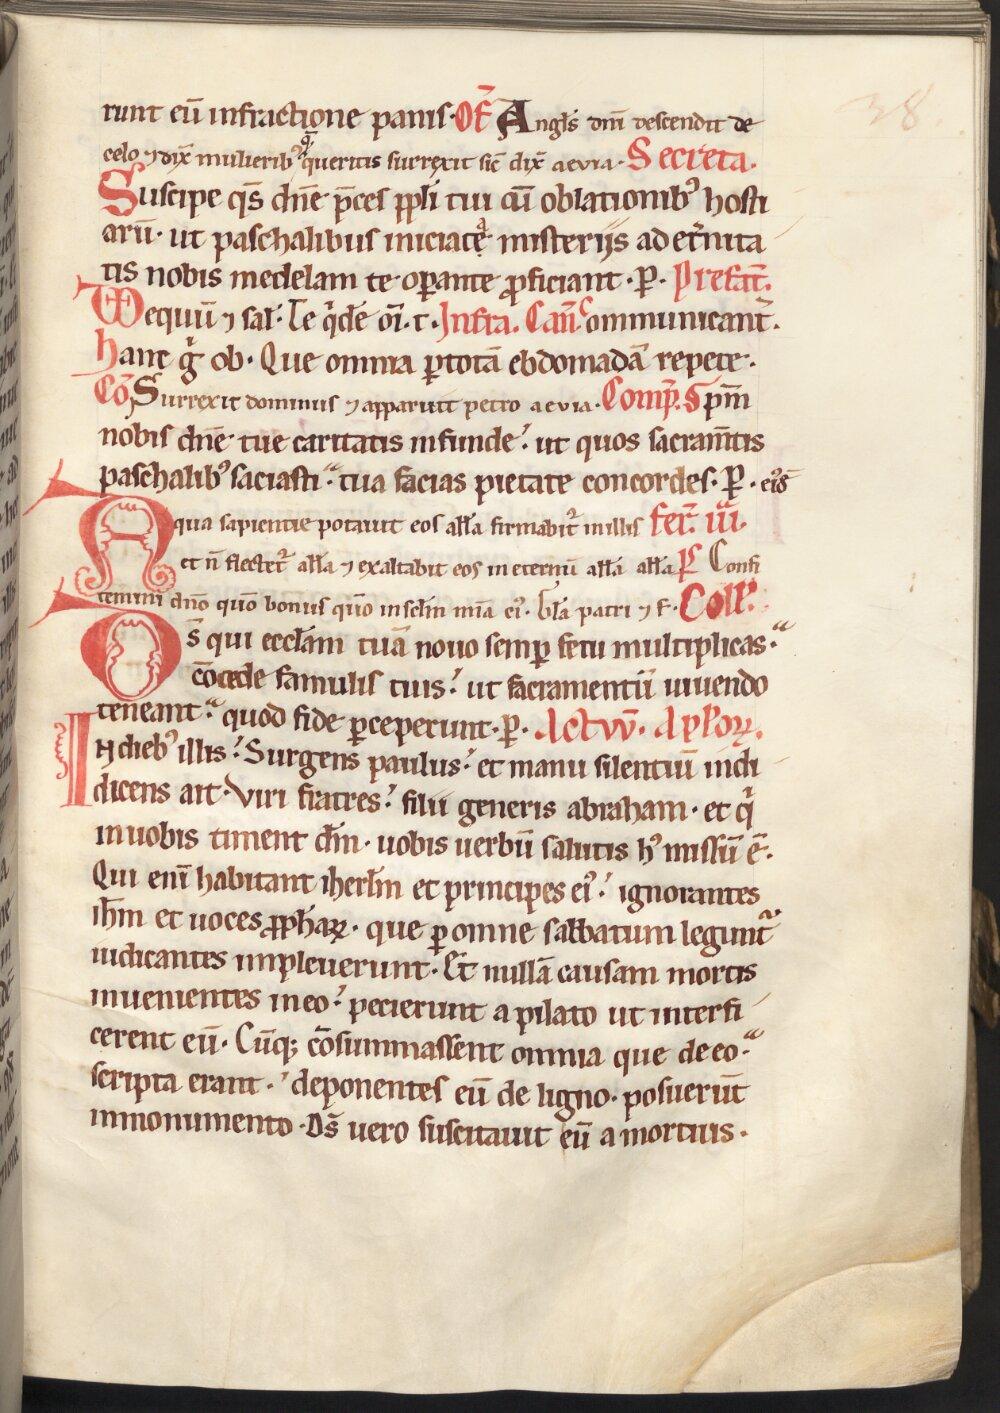 38.
runt eū infractione panis· Of̄ Angl's dn̄i descendit de
celo ⁊ dix̄ mulierib' q̄ queritis surrexit sic̄ dix̄ aevia· Secreta.
Suscipe qs̄ dn̄e p̄ces ppl̄i tui cū oblationib' hosti
arū· ut paschalibus iniciate misteriis ad et̄nita
tis nobis medelam te oꝑante ꝓficiant · P̱ · Prefat̄.
VD equū ⁊ sal'. Te q̇dē om̄. t. Infra. Can̄. Communicant̄.
hanc g̊ ob· Que omnia ꝑtotā ebdomadā repete·
Cō Surrexit dominus ⁊ apparuit petro aevia· Comp̄. Sp̄m
nobis dn̄e tue caritatis infunde· ut quos sacram̄tis
paschalib' saciasti· tua facias pietate concordes· P̱ · eiꝰd̄
Aqua sapientie potauit eos all'a firmabit̄ in illis fer̄. iii.
et n̄ flectet̄ all'a ⁊ exaltabit eos in eternū all'a all'a P̄s Confi
temini dn̄o quō bonus quō in sc̄lm mīa ei'. Gl'a patri ⁊ f· Coll'.
Ds̄ qui eccl̄am tuā nouo semꝑ fetu multiplicas·
cōcede famulis tuis· ut sacramentū uiuendo
teneant· quod fide ꝑceperunt· P̱· Actuū. Apl'oꝝ.
In dieb' illis· Surgens paulus· et manu silentiū indi
dicens ait· Viri fratres· filii generis abraham· et q̇
in uobis timent dm̄· uobis uerbū salutis h' missū ē·
Qui enī habitant iherl̄m et principes ei'· ignorantes
ih̄m et uoces ꝓph̄aꝝ· que ꝑ omne sabbatum legunt̄
iudicantes impleuerunt· Et nullā causam mortis
inuenientes in eo· pecierunt a pilato ut interfi
cerent eū· Cūqꝫ cōsummassent omnia que de eo·
scripta erant· deponentes eū de ligno· posuerūt
in monumento· Ds̄ uero suscitauit eū a mortuis·